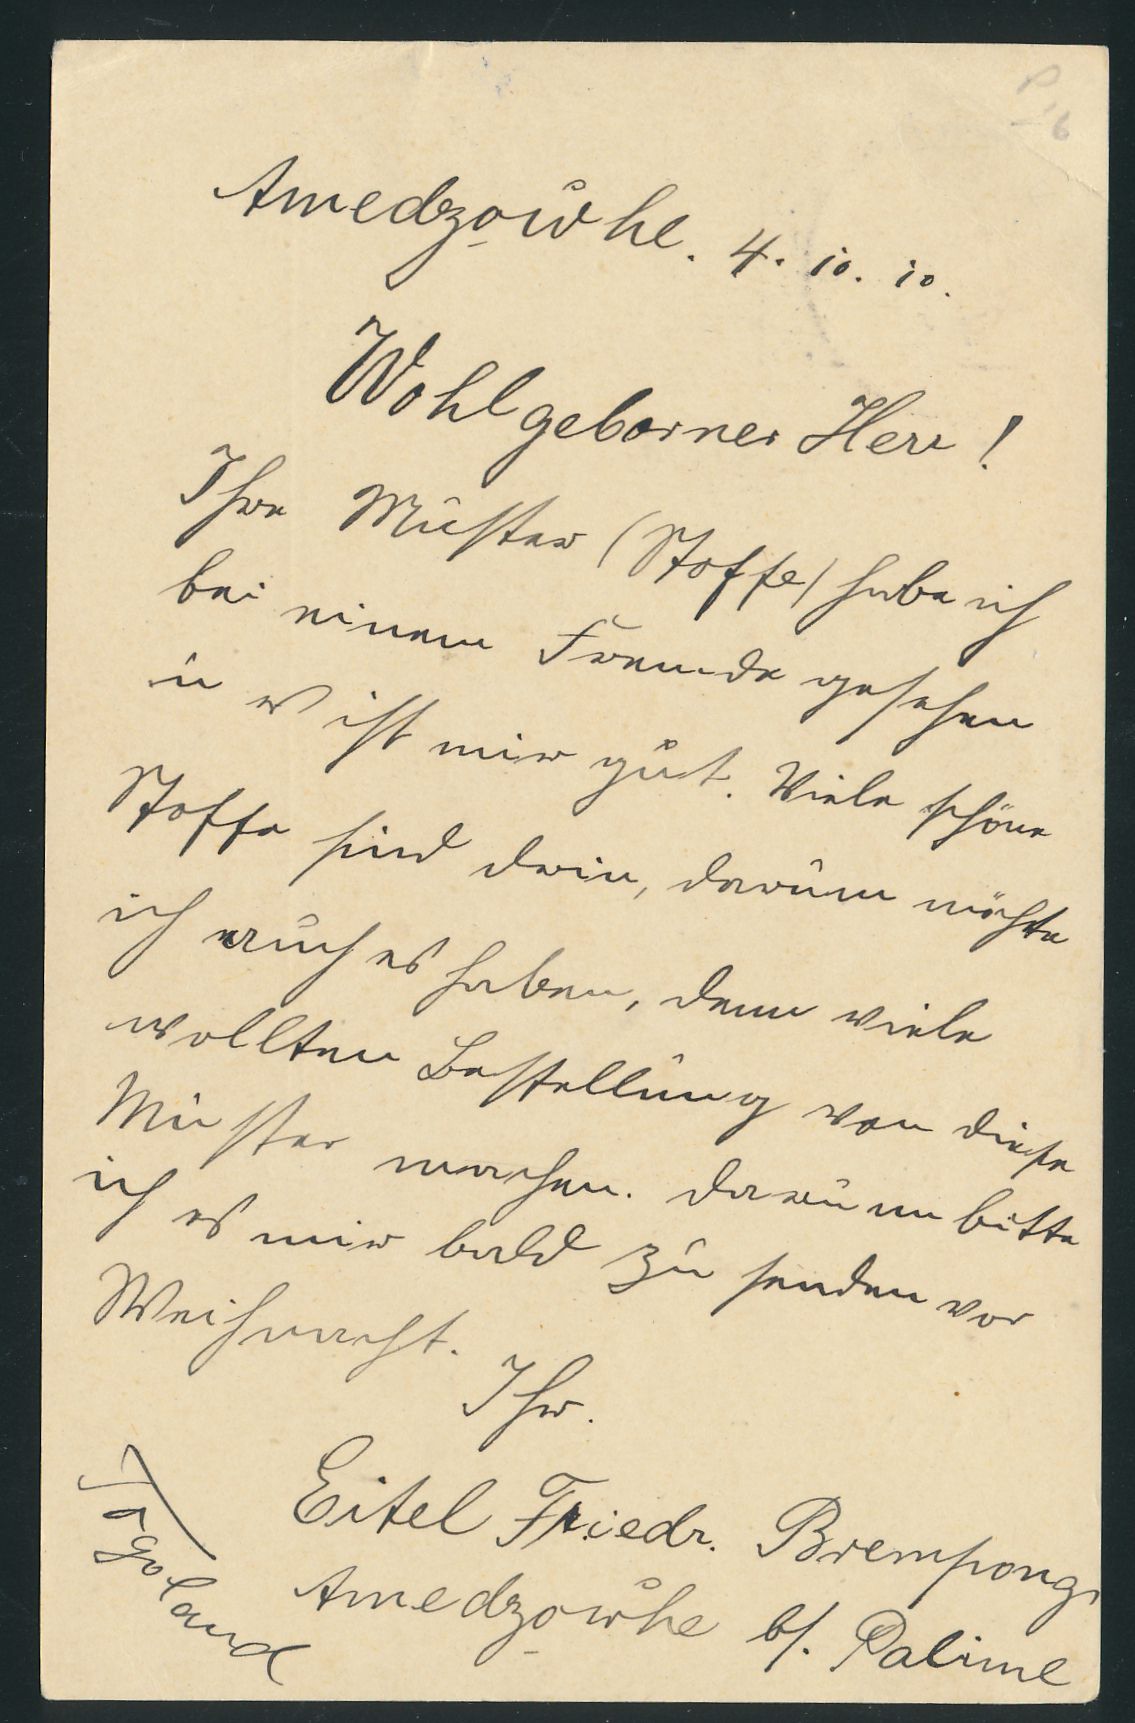 Amedzo̱ŵhe. 4. 10. 10.
Wohlgeborner Herr!
Ihre Muster (Stoffe) habe ich
bei einem Fremde gesehen
u es ist mir gut. Viele schöne
Stoffe sind drin, darum möchte
ich auch es haben, denn viele
wollten Bestellung von diese
Muster machen. Darum bitte
ich es mir bald zu senden vor
Weihnacht.
Ihr.
Eitel Friedr. Brempong
Amedzo̱ŵhe b/. Palime
Togoland
P
16